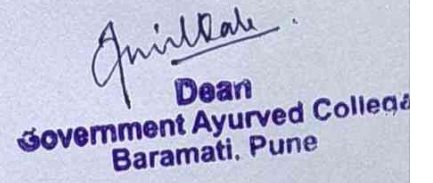 Dean
Government Ayurved College
Baramati, Pune